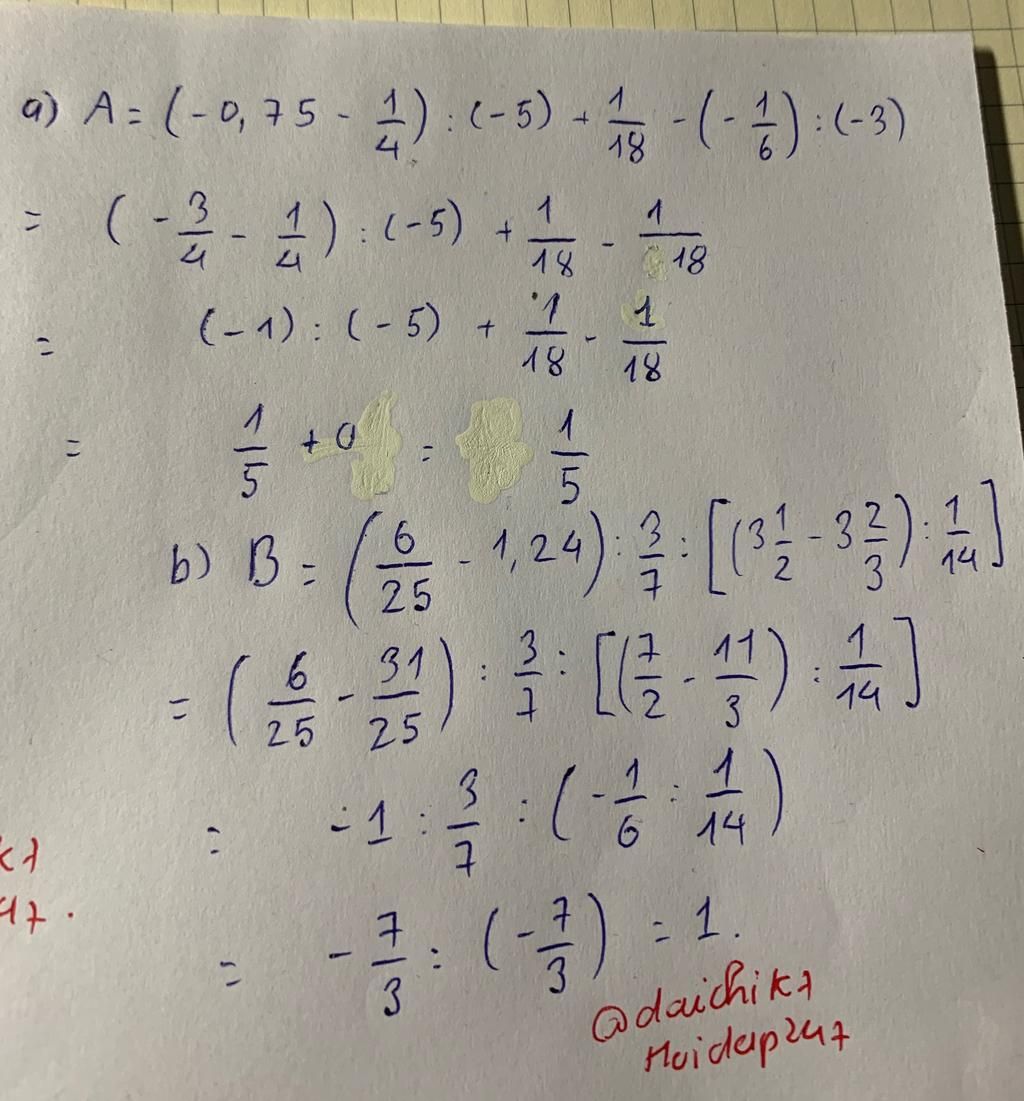 a) A = (-0,75 - 1/4) : (-5) + 1/18 - (-1/6) : (-3)
= (-3/4 - 1/4) : (-5) + 1/18 - 1/18
= (-1) : (-5) + 1/18 - 1/18
= 1/5 + 0 = 1/5
b) B = (6/25 - 1,24) : 3/7 : [(3 1/2 - 3 2/3) : 1/14]
= (6/25 - 31/25) : 3/7 : [(7/2 - 11/3) : 1/14]
= -1 : 3/7 : (-1/6 : 1/14)
= -7/3 : (-7/3) = 1.
@daichik7
Hoidap247